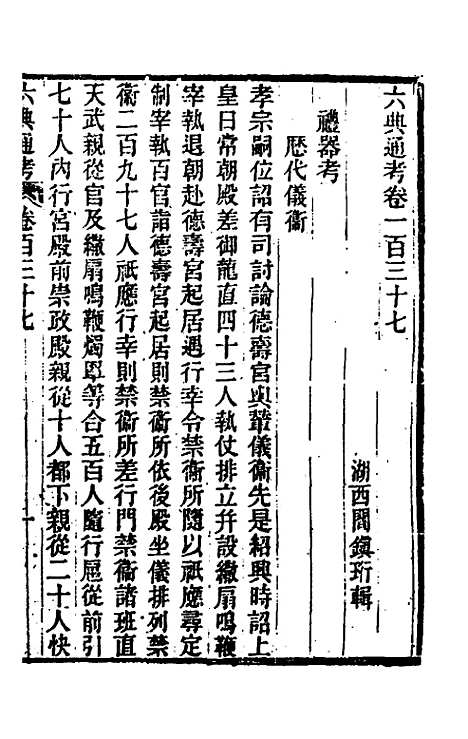 六典通考卷一百三十七
湖西閻鎭珩輯
禮器考
歴代儀衞
孝宗嗣位詔有司討論德壽宮輿輦儀衞先是紹興時詔上
皇日常朝殿差御龍直四十三人執仗排立幷設繖扇鳴鞭
宰執退朝赴德壽宮起居遇行幸令禁衞所隨以祇應尋定
制宰執百官詣德壽宮起居則禁衞所依後殿坐儀排列禁
衞二百九十七人祇應行幸則禁衞所差行門禁衞諸班直
天武親從官及繖扇鳴鞭燭罩等合五百人隨行扈從前引
七十人內行宮殿前崇政殿親從十人都下親從二十人快
六典通考 卷百三十七
一